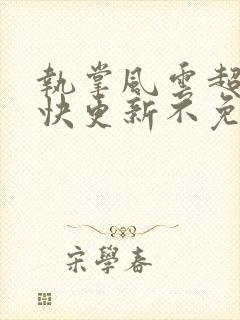 執掌風雲超
快更新不免
宋學春